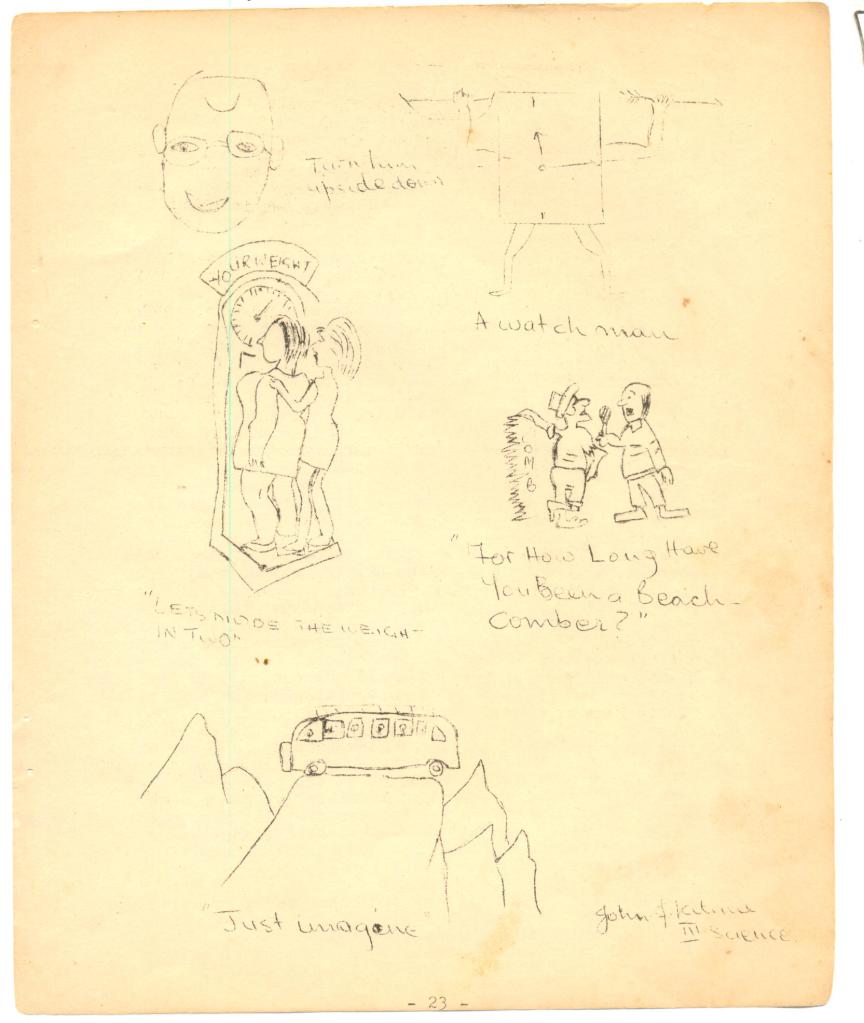 Turn him
upside down
YOUR WEIGHT
A watch man
COMB
"For How Long Have
You Been a Beach-
comber?"
"LETS DIVIDE THE WEIGH-
IN TWO"
"Just imagine"
John J.
III Science
- 23 -